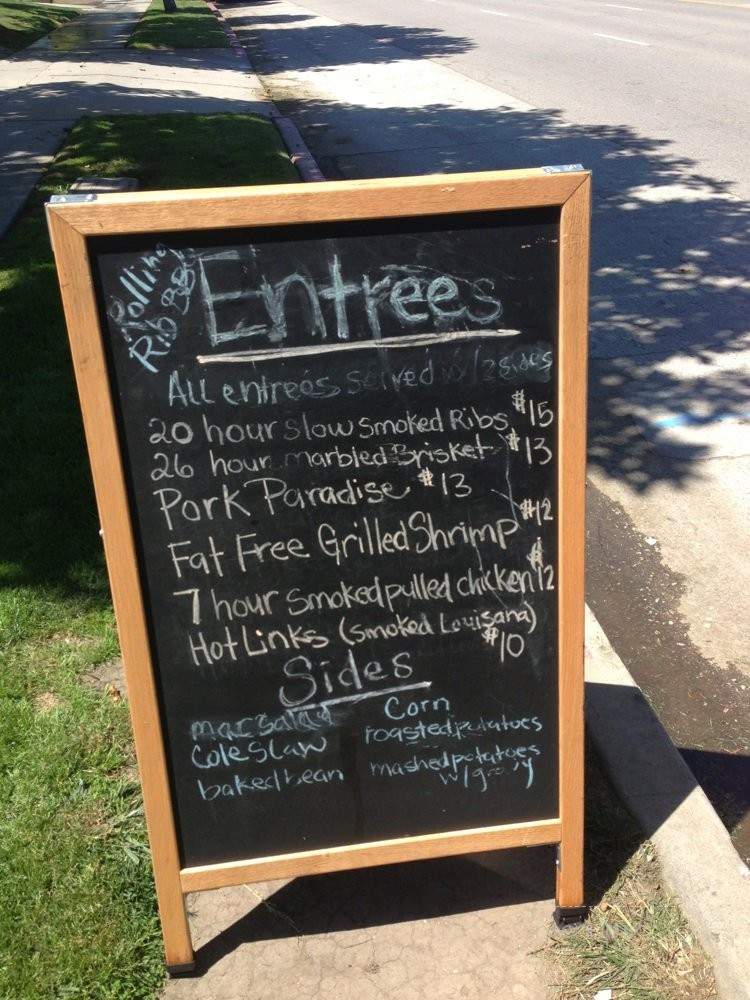 Rolling
Rib BBQ
Entrees
All entrees served w/ 2 sides
20 hour slow smoked Ribs $15
26 hour marbled Brisket $13
Pork Paradise $13
Fat Free Grilled Shrimp $12
7 hour smoked pulled chicken $12
Hot Links (smoked Louisana)
$10
Sides
mac salad
Cole Slaw
baked bean
Corn
roasted potatoes
mashed potatoes
w/ gravy